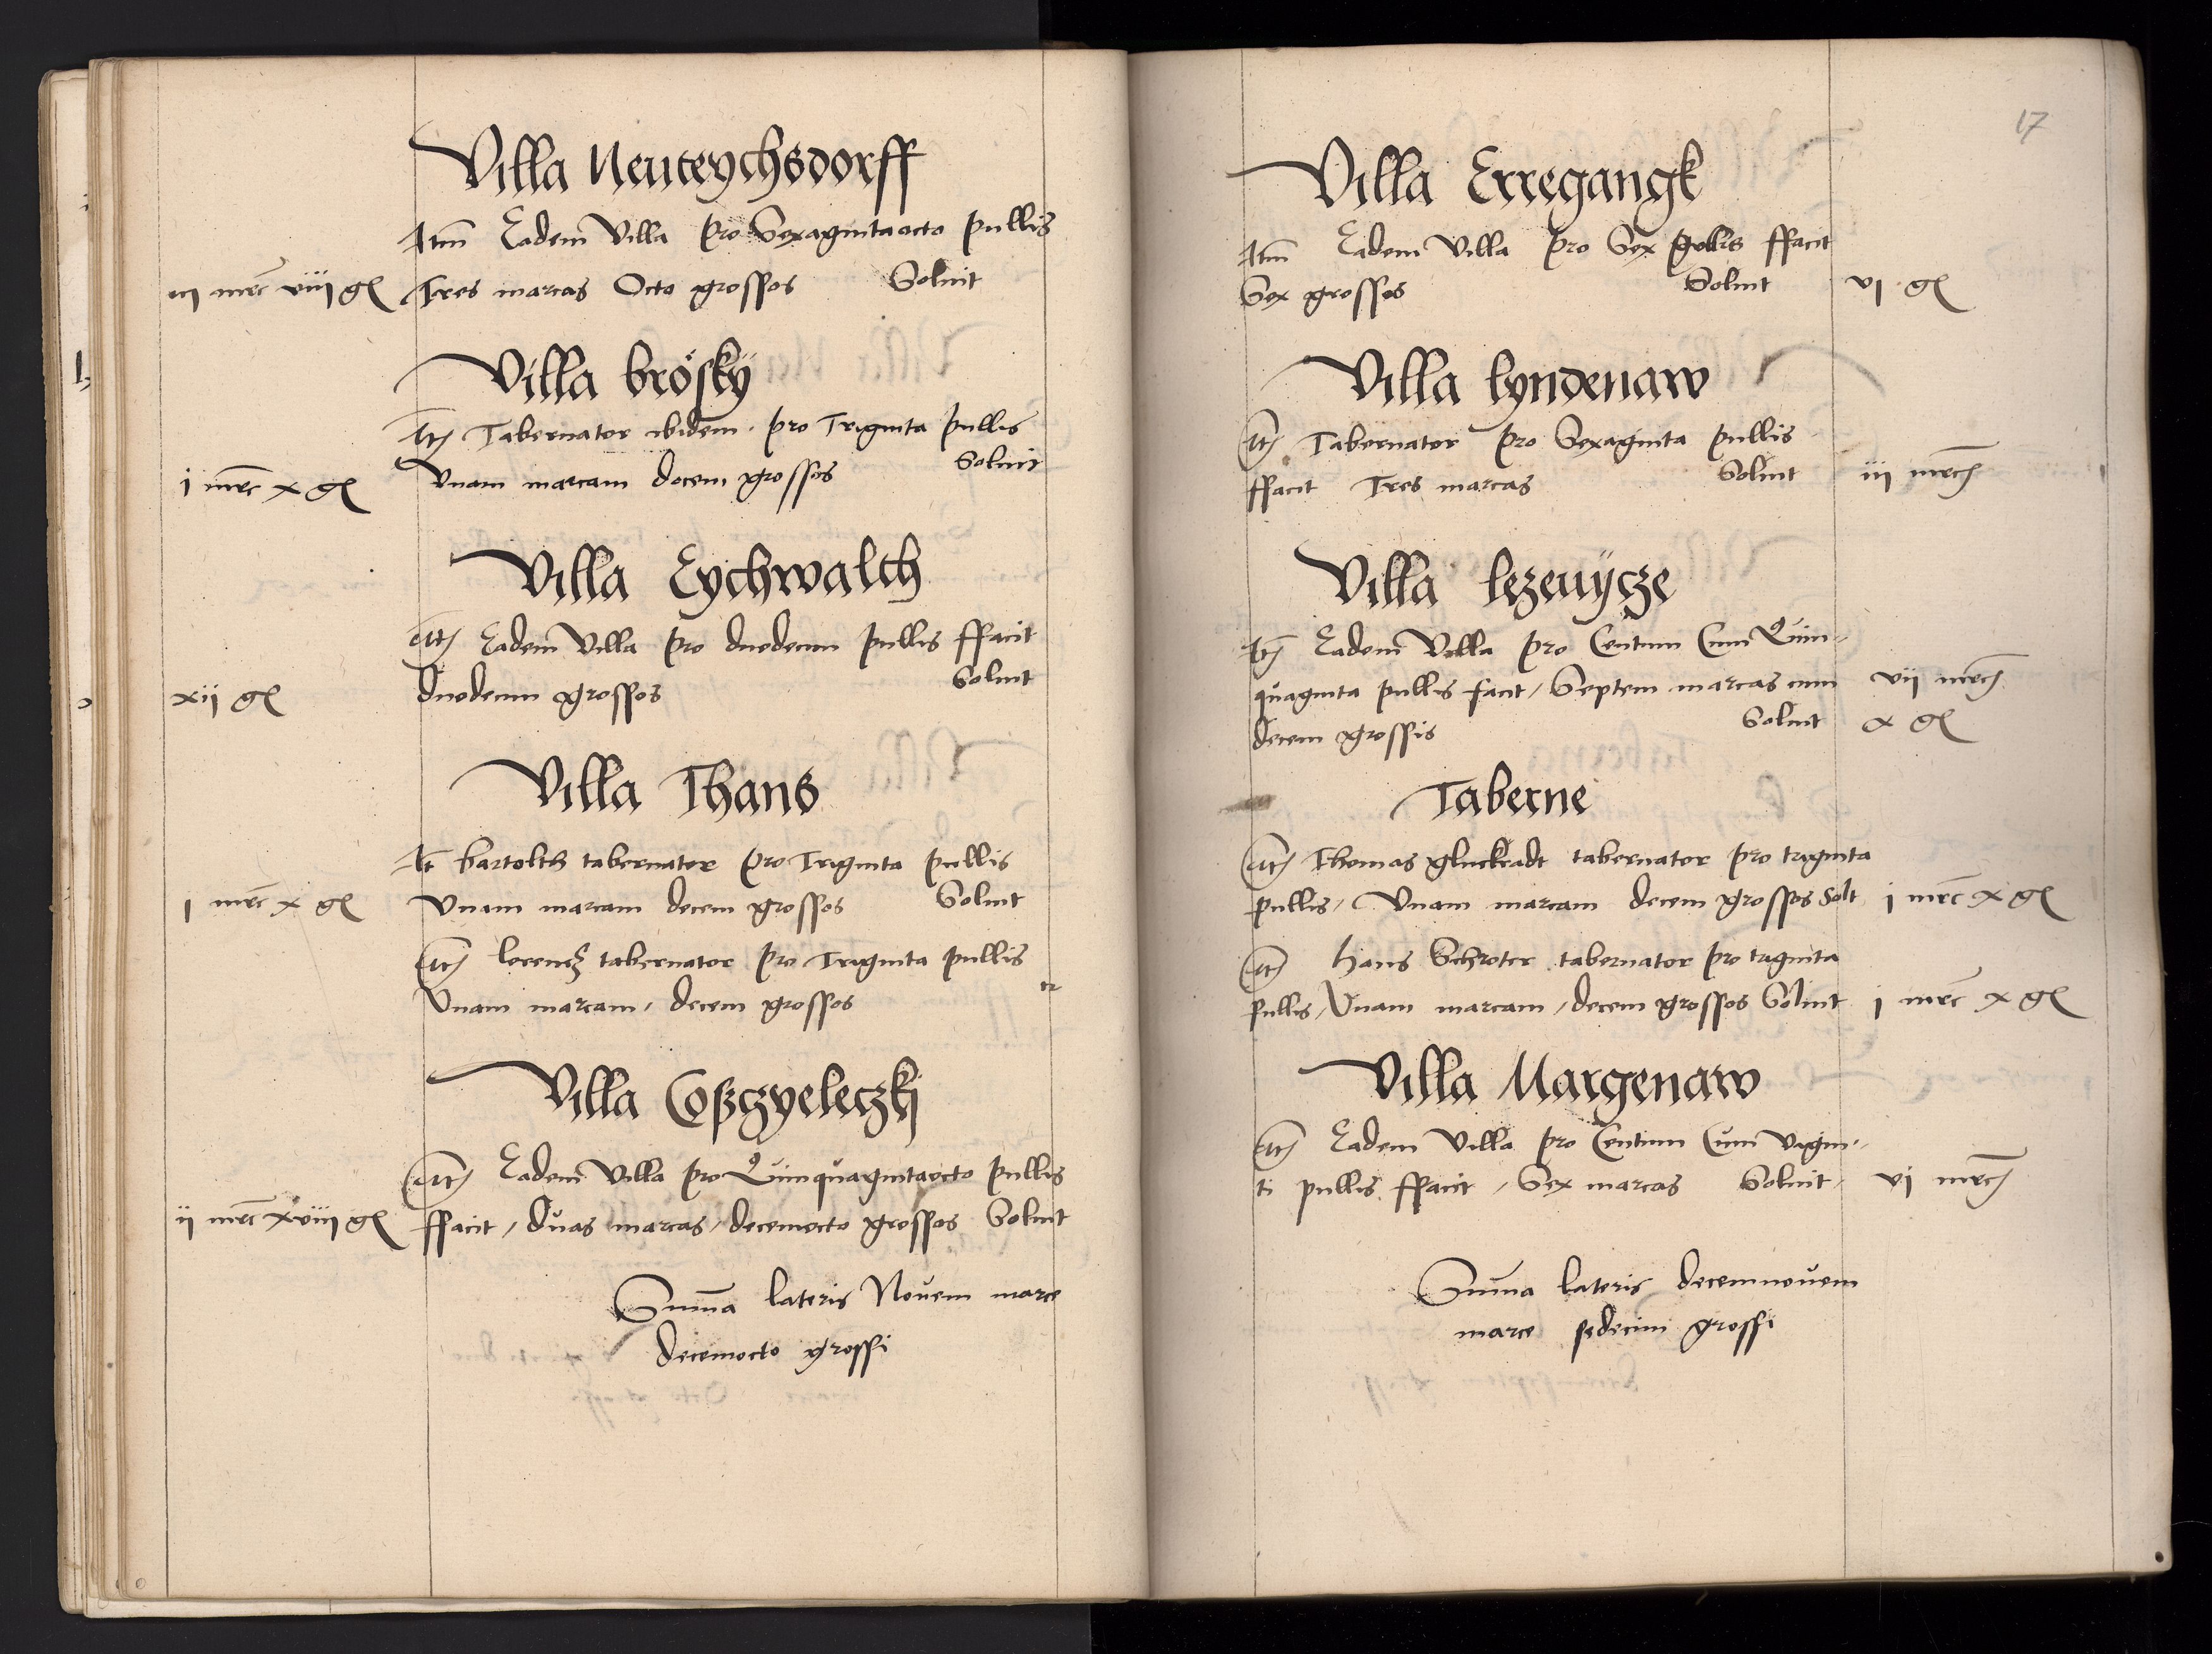 Villa Neuteychsdorff
Itm Eadem Villa pro Sexagintaocto pullis
iij mrc viij gl Tres marcas Octo grossos Soluit
Villa brösky
Itm Tabernator ibidem pro Triginta pullis
j mrc x gl Vnam marcam decem grossos Soluit
Villa Eychwalth
Itm Eadem Villa pro duodecim pullis ffacit
xij gl duodecim grossos Soluit
Villa Thans
It bartolth tabernator pro Triginta pullis
j mrc x gl Vnam marcam decem grossos Soluit
Itm lorencz tabernator pro Triginta pullis
Vnam marcam, decem grossos
Villa Coßczyeleczkj
Itm Eadem Villa pro Quinquagintaocto pullis
ij mrc xviij gl ffacit, duas marcas, decemocto grossos Soluit
Summa lateris Nouem marce
decemocto grossi
17
Villa Erregangk
Itm Eadem Villa pro Sex pullis ffacit
Sex grossos Soluit vj gl
Villa lyndenaw
Itm Tabernator pro Sexaginta pullis
ffacit Tres marcas Soluit iij mrc
Villa lezenÿcze
Itm Eadem Villa pro Centum Cum Quin-
quaginta pullis facit, Septem marcas cum vij mrc
decem grossis Soluit x gl
Taberne
Itm Thomas gluckradt tabernator pro triginta
pullis, Vnam marcam decem grossos Solt j mrc x gl
Itm hans Schroter tabernator pro triginta
pullis, Vnam marcam, decem grossos Soluit j mrc x gl
Villa Margenaw
Itm Eadem Villa pro Centum Cum vigin-
ti pullis ffacit, Sex marcas Soluit vj mrc
Summa lateris decemnouem
marce sedecim grossi